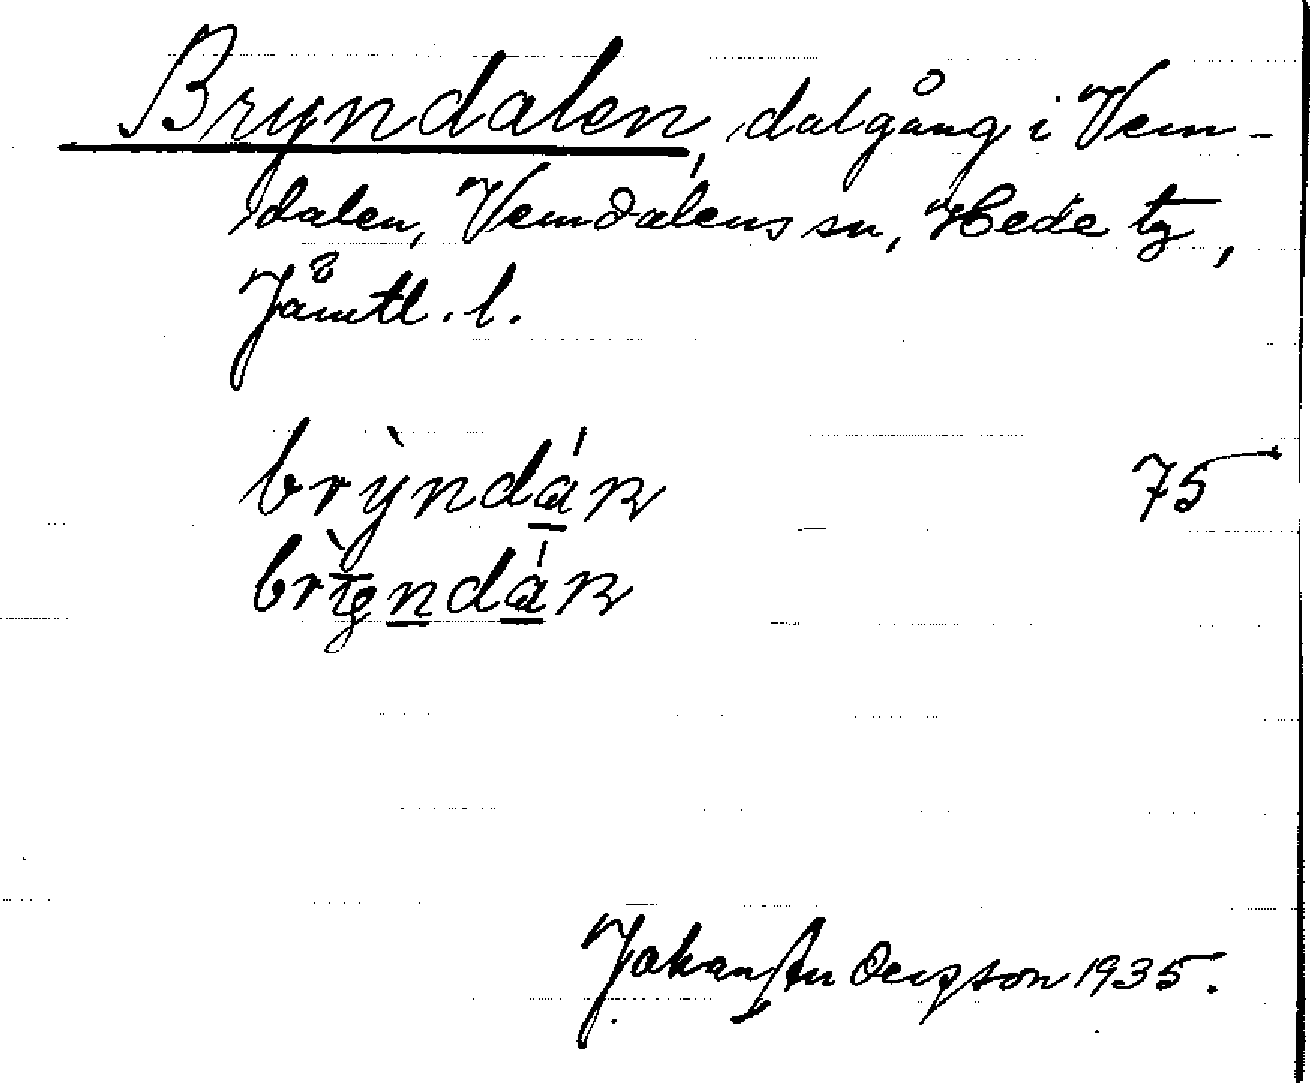 Bryndalen, dalgång i Vem-
dalen, Vemdalens sn, Hede tg,
Jämtl. l.
brỳndá̱ꞃ 75
Johan Anderson 1935.